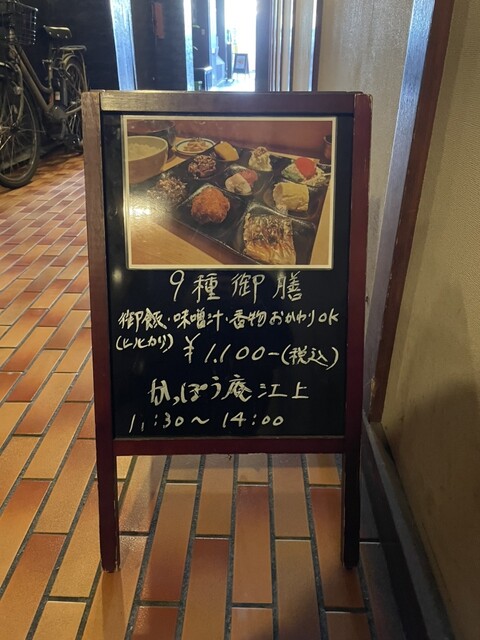 9種御膳
御飯・味噌汁・香物おかわりOK
(ヒノヒカリ)
¥1.100-(税込)
かっぽう庵江上
11:30〜14:00